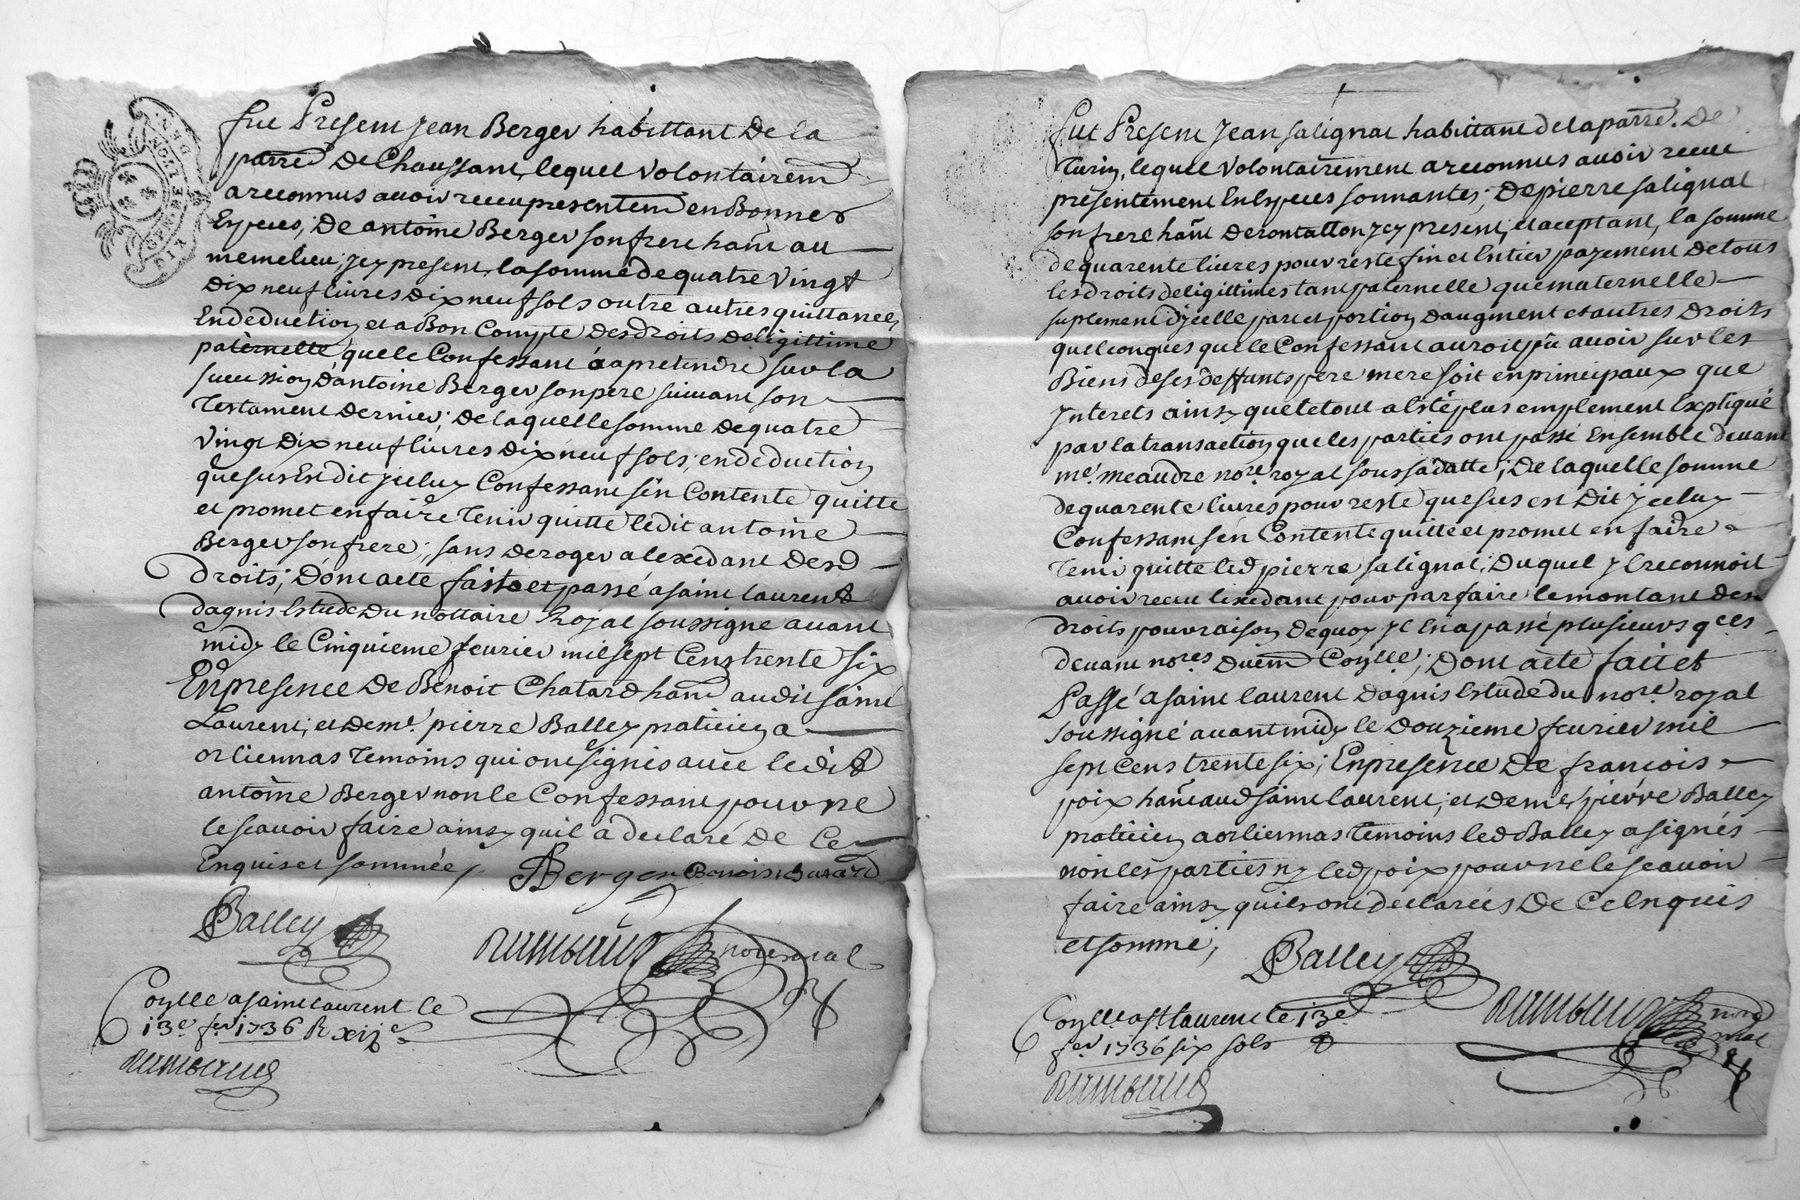 fut Present Jean Berger habittant De la
parre De Chaussant, lequel volontairem
a reconnus avoir receu presentem en Bonnes
Especes, De antoine Berger son frere hant au
meme lieu, icy present, la somme de quatre vingt
Dix neuf livres dix neuf sols outre autres quittances
En deduction et a Bon Compte des droits de ligittime
paternelle que le Confessant a a pretendre sur la
succession d'antoine Berger son pere suivant son
Testament dernier; de laquelle somme de quatre
vingt Dix neuf livres dix neuf sols, en deduction
que sus Est dit yceluy Confessant s'en Contente quitte
et promet en faire Tenir quitte ledit antoine
Berger son frere; sans deroger a lexedant desd
droits; Dont acte fait et passé a saint laurent
dagnis Estude Du nottaire Royal soussigne avant
midy le Cinquieme fevrier mil sept Cens trente six
En presence De Benoit Chatard hant audit saint
Laurent, et de me pierre Balley praticien a
orliennas Temoins qui ont signés avec ledit
antoine Berger non le Confessant pour ne
le scavoir faire ainsy quil a declaré de Ce
Enquis et sommée
Berger Benoist
Balley
nore royal
Coylle a saint laurent le
13e fer 1736 R xij s
DEN
GENERALITE
fut Present Jean salignat habittant de la parre. De
Turin, lequel volontairement a reconnus avoir receu
presentement En Especes sonnantes, De pierre salignat
son frere hant De rontallon Jcy present, et aceptant, la somme
de quarente livres pour reste fin et Entier payement de tous
les droits de ligittimes tant paternelle que maternelle
suplement d'ycelle part et portion d'augment et autres droits
quelconques que le Confessant auroit pu avoir sur les
Biens de ses deffunts pere mere soit en principaux que
Interets ainsy que le tout a esté plus emplement Expliqué
par la transaction que les parties ont passé Ensemble devant
me. meaudre nore. royal sous sa datte; De laquelle somme
de quarente livres pour reste que sus est Dit yceluy
Confessant s'en Contente quitte et promet en faire
Tenir quitte led pierre salignat; Duquel Il reconnoit
avoir receu lexedant pour parfaire le montant des
droits pour raison De quoy Il En a passé plusieurs qces
devant nores Duem Coylle; Dont acte fait et
Passé a saint laurent Dagnis Estude du nore royal
soussigné avant midy le Douzieme fevrier mil
sept Cens trente six; En presence De francois
poix hant aud saint laurent, et de me pierre Balley
praticien a orliennas temoins led Balley a signés
non les parties ny led poix pour ne le scavoir
faire ainsy quils ont declarées De Ce Enquis
et sommé;
Balley
Coylle a st laurent le 13e
fer 1736 six sols